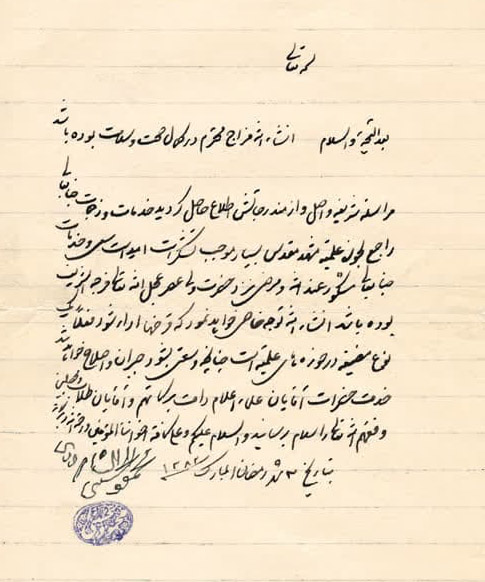 بسمه تعالی
بعد التحیة والسلام انشاء الله مزاج محترم در کمال صحت و سلامت بوده باشد
مراسله شریفه واصل و از مندرجاتش اطلاع حاصل گردید خدمات و زحمات جنابعالی
راجع بحوزه علمیه مشهد مقدس بسیار موجب تشکر است امید است سعی و خدمات
جنابعالی مشکور عند الله و مرضی نزد حضرت ولی عصر عجل الله تعالی فرجه الشریف
بوده باشد انشاء الله توجه خاصی خواهید نمود که قرضها اداء شود فعلاً یک
نوع مضیقه در حوزه های علمیه است چنانچه وسعتی بشود جبران و اصلاح خواهد شد
خدمت حضرات آقایان علماء اعلام دامت برکاتهم و آقایان طلاب و محصلین
وفقهم الله تعالی را سلام برسانید والسلام علیکم و علی کافة اخواننا المؤمنین و رحمة الله و برکاته
بتاریخ شهر رمضان المبارک ۱۳۸۲